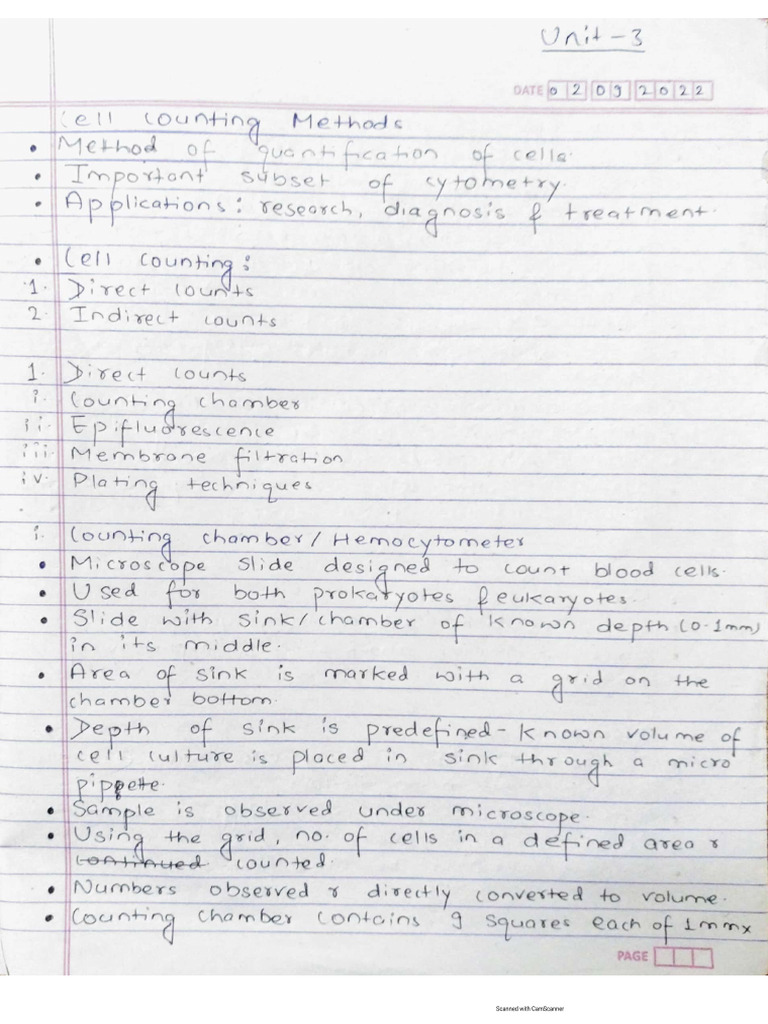 Unit - 3
DATE 0 2 0 9 2 0 2 2
Cell Counting Methods
• Method of quantification of cells.
• Important subset of cytometry.
• Applications: research, diagnosis & treatment.
• Cell counting:
1. Direct counts
2. Indirect counts
1. Direct counts
i. Counting chamber
ii. Epifluorescence
iii. Membrane filtration
iv. Plating techniques
i. Counting chamber / Hemocytometer
• Microscope slide designed to count blood cells.
• Used for both prokaryotes & eukaryotes.
• Slide with sink/chamber of known depth (0.1mm)
in its middle.
• Area of sink is marked with a grid on the
chamber bottom.
• Depth of sink is predefined - known volume of
cell culture is placed in sink through a micro
pippete.
• Sample is observed under microscope.
• Using the grid, no. of cells in a defined area r
continued counted.
• Numbers observed r directly converted to volume.
• Counting chamber contains 9 squares each of 1mmx
PAGE
Scanned with CamScanner